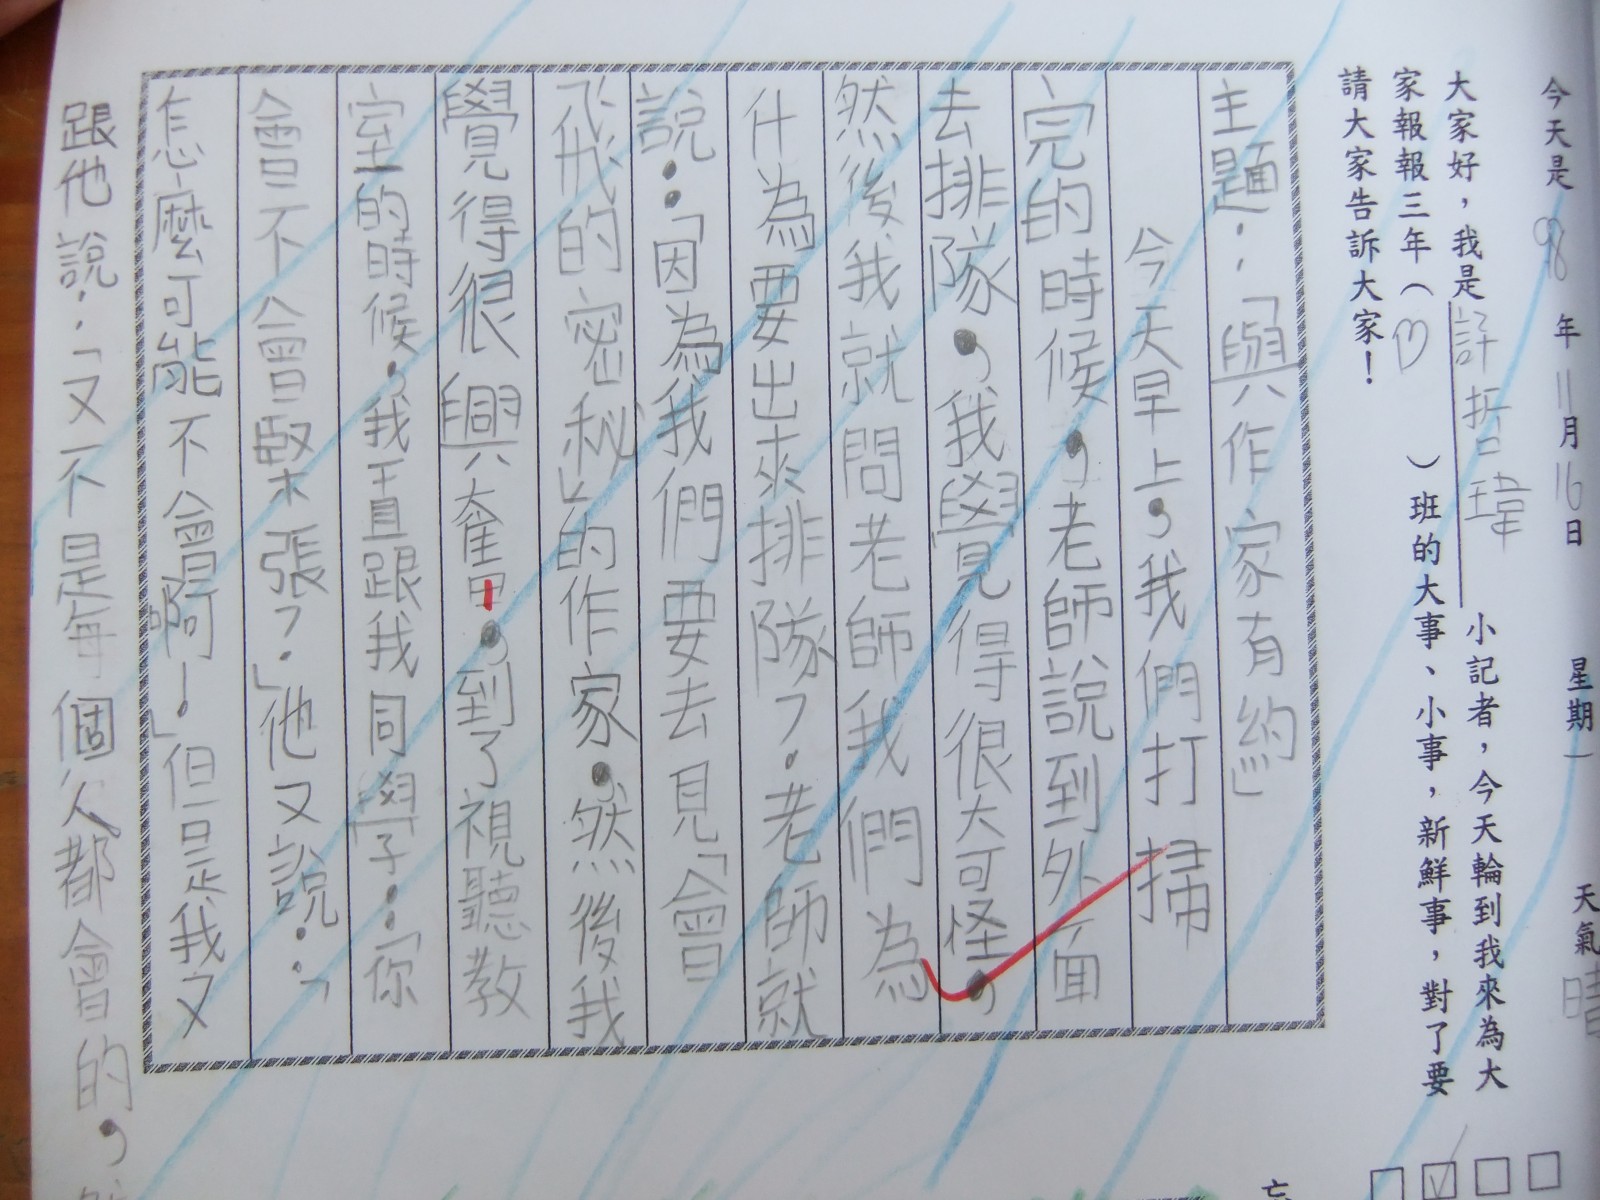 今天是98年11月16日 星期一 天氣晴
大家好，我是許哲瑋小記者，今天輪到我來為大
家報報三年（ ）班的大事、小事，新鮮事，對了要
請大家告訴大家！
主題：「與作家有約」
今天早上，我們打掃
完的時候，老師說到外面
去排隊，我覺得很大可怪，
然後我就問老師我們為
什為要出來排隊？老師就
說：「因為我們要去見「會
飛的密秘」的作家，然後我
覺得很興奮，到了視聽教
室的時候，我一直跟我同學：「你
會不會緊張？」他又說：「
怎麼可能不會啊！」但是我又
跟他說：「又不是每個人都會的，